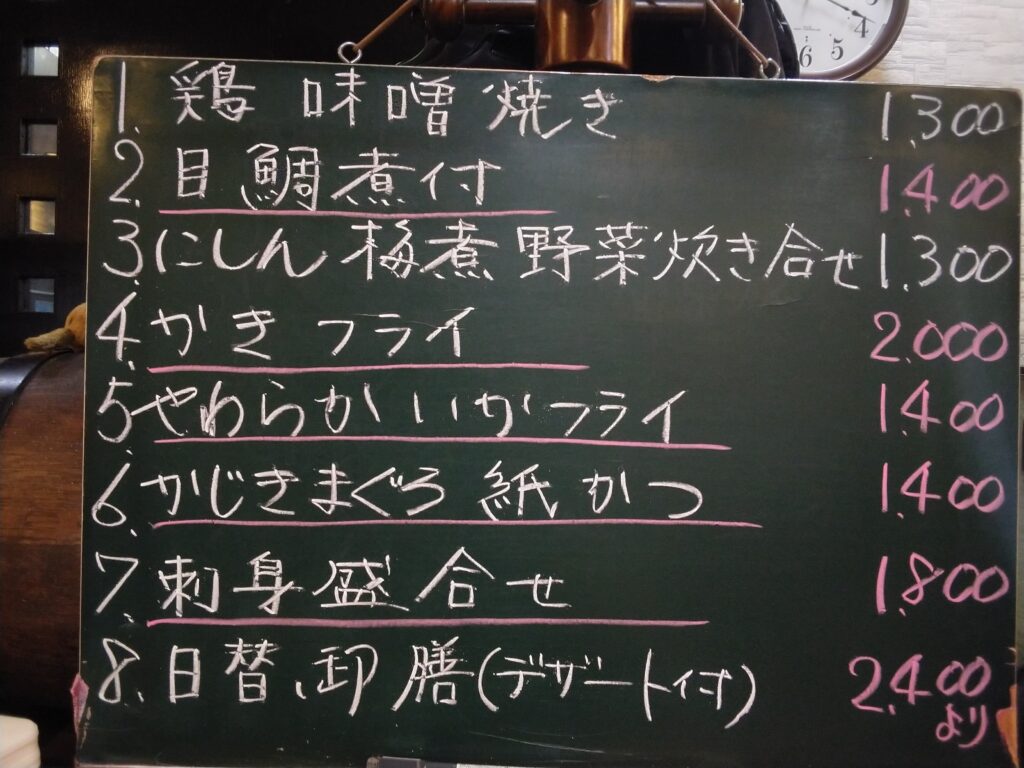 1. 鶏 味噌 焼き 1,300
2. 目鯛煮付 1,400
3. にしん 梅煮 野菜炊き合せ 1,300
4. かき フライ 2,000
5. やわらかいかフライ 1,400
6. かじきまぐろ 紙かつ 1,400
7. 刺身盛合せ 1,800
8. 日替、卸膳(デザート付) 2,400
より
4
5
6